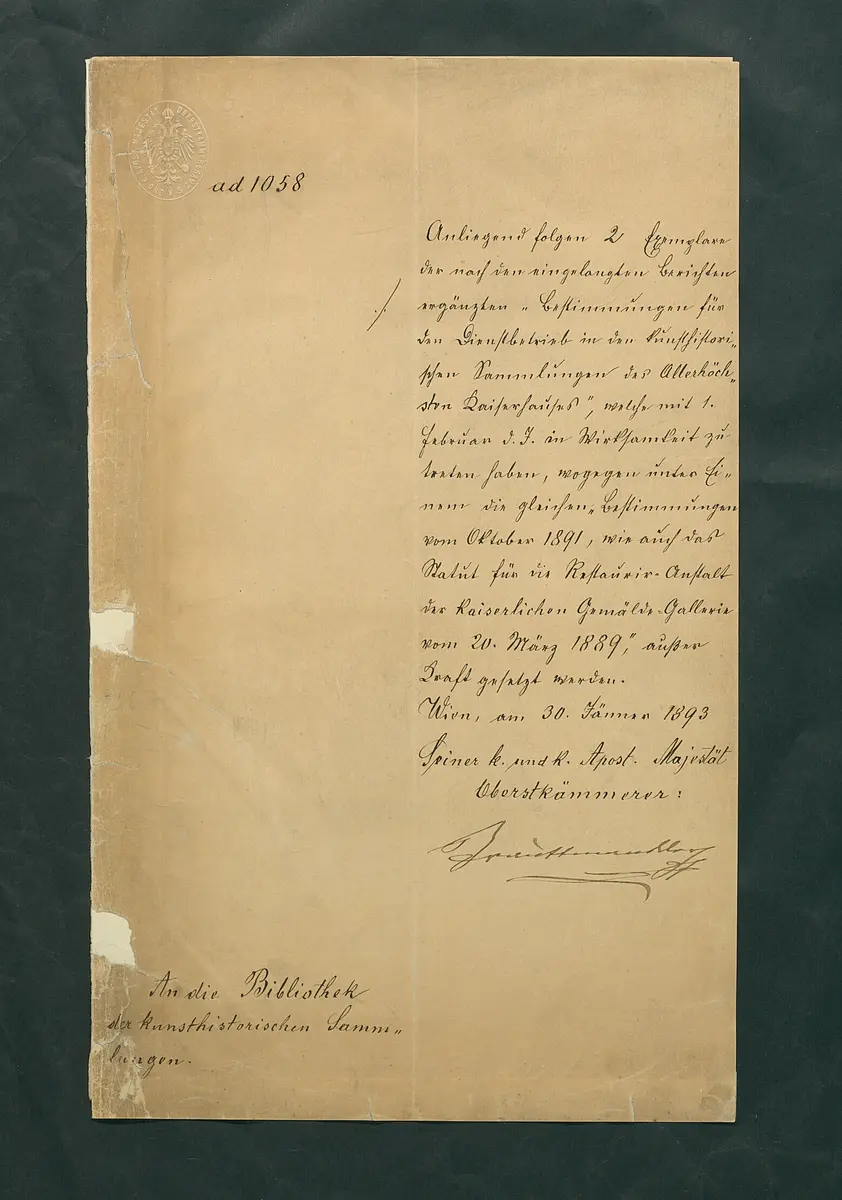 ad 1058
Anliegend folgen 2 Exemplare
der nach den eingelangten Berichten
./. ergänzten „Bestimmungen für
den Dienstbetrieb in den kunsthistori„
schen Sammlungen des Allerhöch„
sten Kaiserhauses", welche mit 1.
Februar d. J. in Wirksamkeit zu
treten haben, wogegen unter Ei„
nem die gleichen „Bestimmungen
vom Oktober 1891, wie auch das
Statut für die Restaurir-Anstalt
der kaiserlichen Gemälde-Gallerie
vom 20. März 1889", außer
Kraft gesetzt werden.
Wien, am 30. Jänner 1893
Seiner k. und k. Apost. Majestät
Oberstkämmerer:
An die Bibliothek
der kunsthistorischen Samm„
lungen.